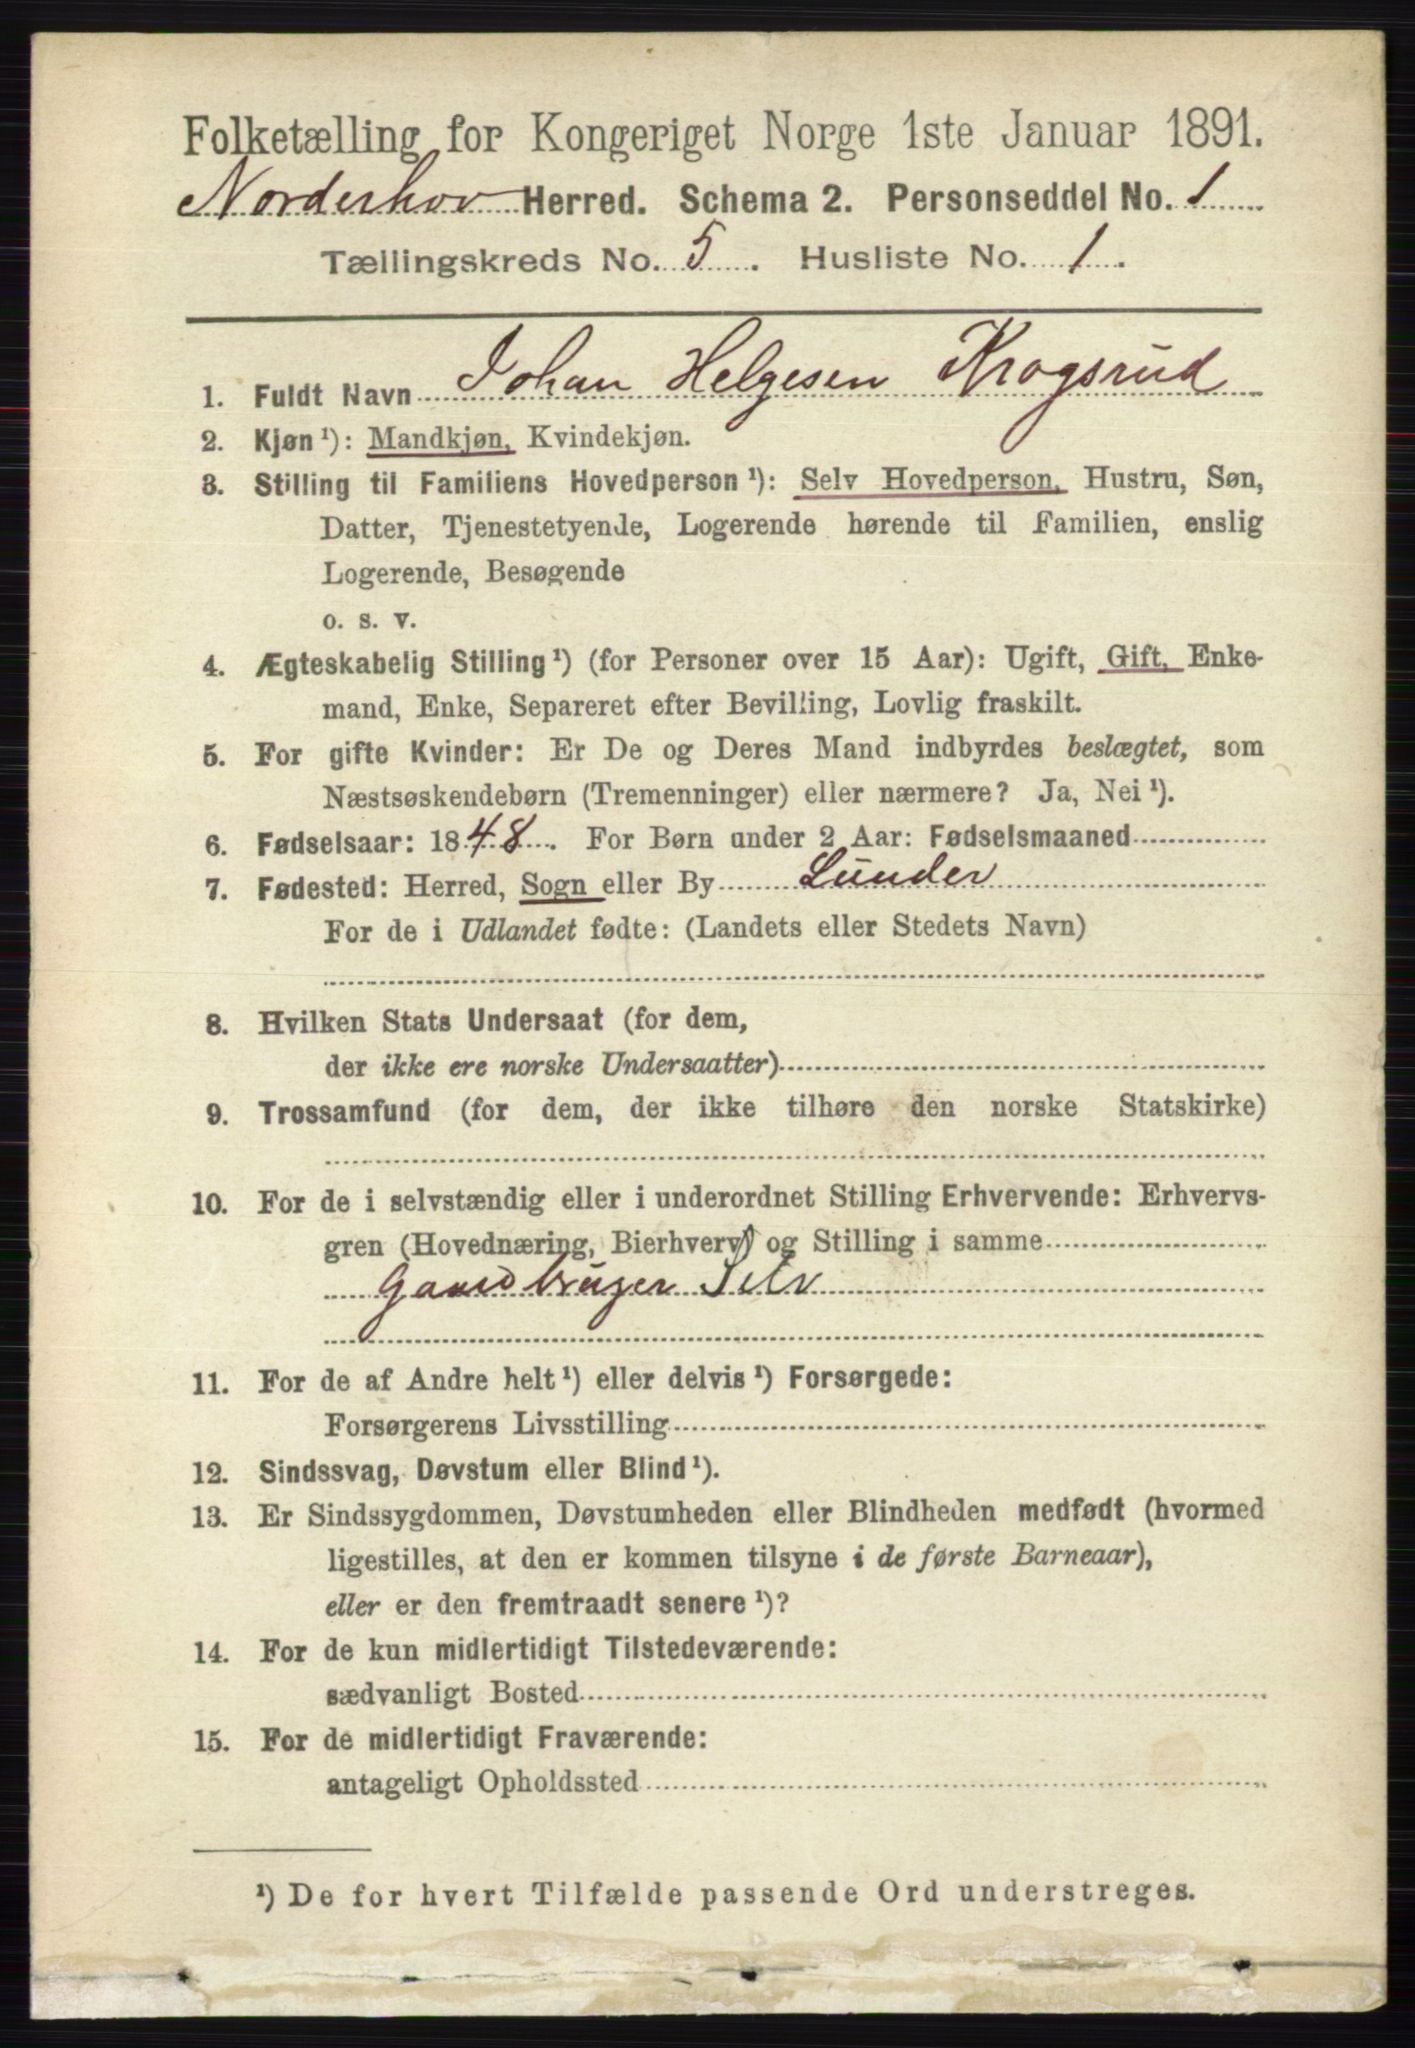 Folketælling for Kongeriget Norge 1ste Januar 1891.
Norderhov Herred. Schema 2. Personseddel No. 1
Tællingskreds No. 5. Husliste No. 1.
1. Fuldt Navn Johan Helgesen Krogsrud
2. Kjøn¹): Mandkjøn, Kvindekjøn.
3. Stilling til Familiens Hovedperson¹): Selv Hovedperson, Hustru, Søn,
Datter, Tjenestetyende, Logerende hørende til Familien, enslig
Logerende, Besøgende
o. s. v.
4. Ægteskabelig Stilling¹) (for Personer over 15 Aar): Ugift, Gift, Enke-
mand, Enke, Separeret efter Bevilling, Lovlig fraskilt.
5. For gifte Kvinder: Er De og Deres Mand indbyrdes beslægtet, som
Næstsøskendebørn (Tremenninger) eller nærmere? Ja, Nei¹).
6. Fødselsaar: 1848. For Børn under 2 Aar: Fødselsmaaned
7. Fødested: Herred, Sogn eller By Lunder
For de i Udlandet fødte: (Landets eller Stedets Navn)
8. Hvilken Stats Undersaat (for dem,
der ikke ere norske Undersaatter)
9. Trossamfund (for dem, der ikke tilhøre den norske Statskirke)
10. For de i selvstændig eller i underordnet Stilling Erhvervende: Erhvervs-
gren (Hovednæring, Bierhverv) og Stilling i samme
Gaardbruger Selv
11. For de af Andre helt¹) eller delvis¹) Forsørgede:
Forsørgerens Livsstilling
12. Sindssvag, Døvstum eller Blind¹).
13. Er Sindssygdommen, Døvstumheden eller Blindheden medfødt (hvormed
ligestilles, at den er kommen tilsyne i de første Barneaar),
eller er den fremtraadt senere¹)?
14. For de kun midlertidigt Tilstedeværende:
sædvanligt Bosted
15. For de midlertidigt Fraværende:
antageligt Opholdssted
¹) De for hvert Tilfælde passende Ord understreges.